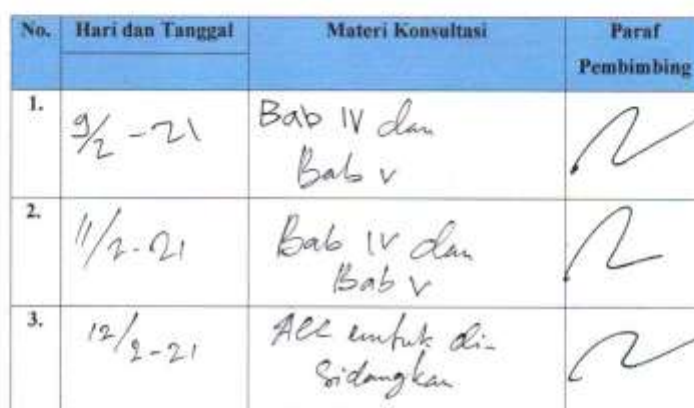 No. Hari dan Tanggal Materi Konsultasi Paraf
Pembimbing
1. 9/2 - 21 Bab IV dan
Bab V
2. 11/2 - 21 Bab IV dan
Bab V
3. 12/2 - 21 Acc untuk di-
sidangkan